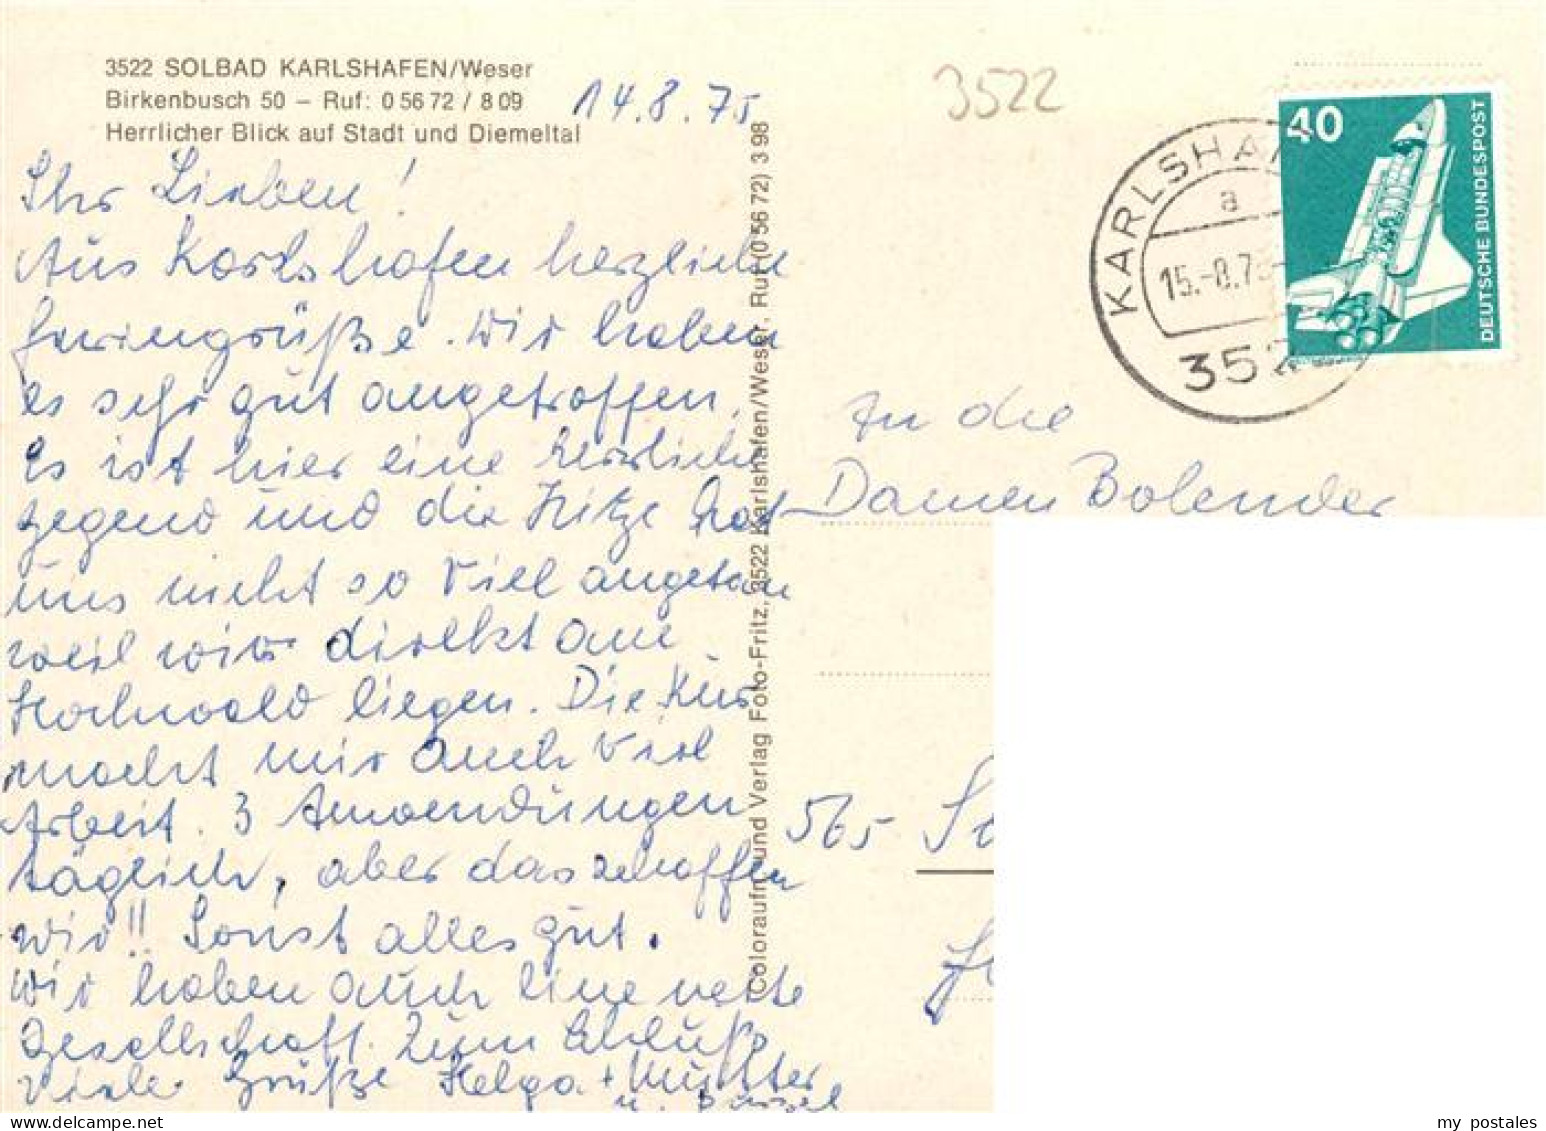 3522 SOLBAD KARLSHAFEN/Weser
Birkenbusch 50 – Ruf: 0 56 72 / 8 09
Herrlicher Blick auf Stadt und Diemeltal
14.8.75
Ihr Lieben!
Aus Karlshafen herzliche
Feriengrüße. Wir haben
es sehr gut angetroffen,
Es ist hier eine herrliche
Gegend und die Hitze hat
uns nicht so viel angetan
weil wir direkt am
Hochwald liegen. Die Kur
macht mir auch viel
Arbeit. 3 Anwendungen
täglich, aber das schaffen
wir!! Sonst alles gut.
Wir haben auch eine nette
Gesellschaft. Zum Schluß
viele Grüße Helga + Mutter
u.
Coloraufn. und Verlag Foto-Fritz, 3522 Karlshafen/Weser, Ruf (0 56 72) 3 98
3522
KARLSHAF
a
15.-8.75
352
40
DEUTSCHE BUNDESPOST
An die
Damen Bolender
565 So
my postales